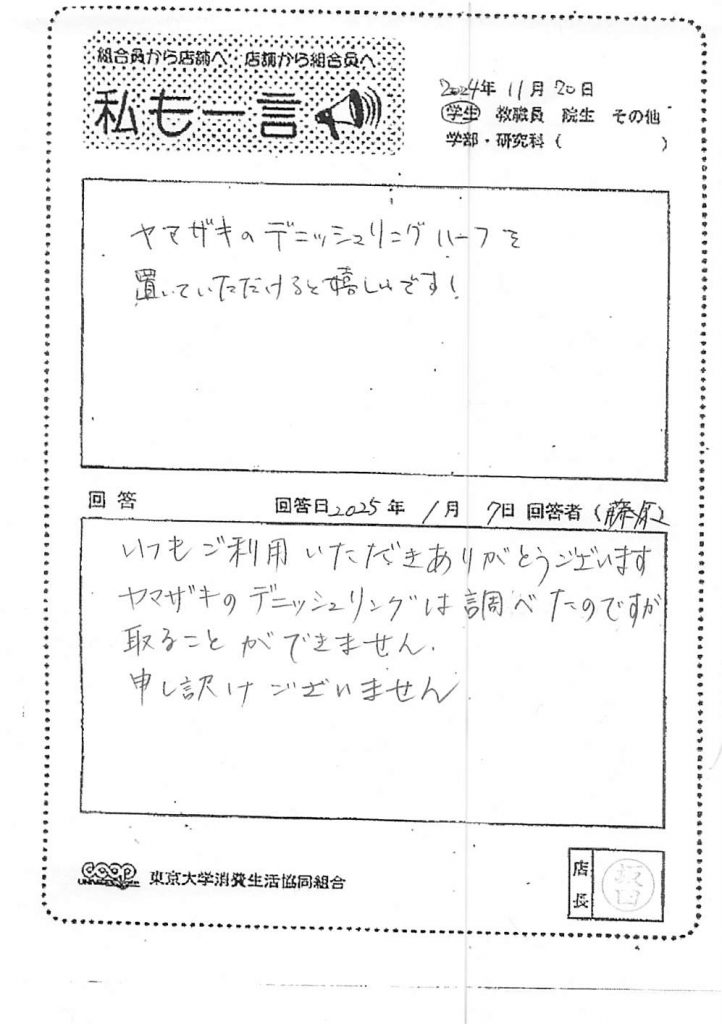 組合員から店舗へ 店舗から組合員へ
私も一言
2024年 11月 20日
学生 教職員 院生 その他
学部・研究科( )
ヤマザキのデニッシュリングハーフを
置いていただけると嬉しいです!
回答 回答日2025年 1月 7日 回答者(藤原)
いつもご利用いただきありがとうございます
ヤマザキのデニッシュリングは調べたのですが
取ることができません.
申し訳けございません
coop 東京大学消費生活協同組合
店長